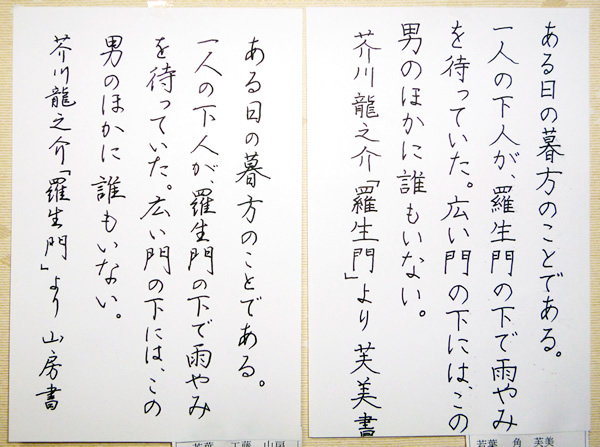 ある日の暮方のことである。
一人の下人が、羅生門の下で雨やみ
を待っていた。広い門の下には、この
男のほかに誰もいない。
芥川龍之介「羅生門」より 芙美書
若葉 角 芙美
ある日の暮方のことである。
一人の下人が、羅生門の下で雨やみ
を待っていた。広い門の下には、この
男のほかに誰もいない。
芥川龍之介「羅生門」より 山房書